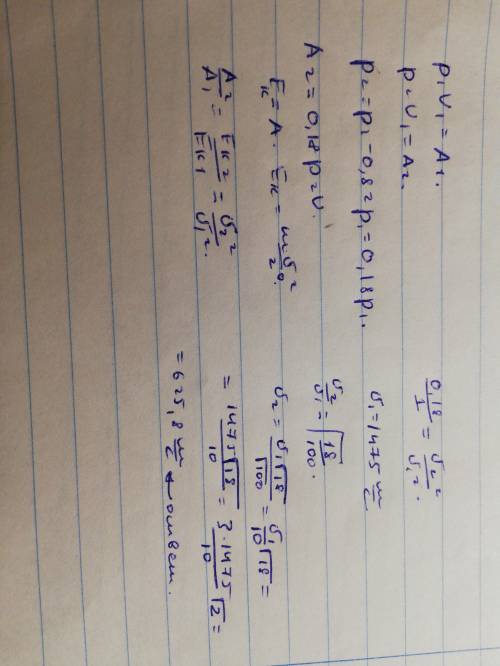 p₁V₁ = A₁.
p₂V₁ = A₂.
p₂ = p₁ - 0,82p₁ = 0,18p₁.
A₂ = 0,18p₂V.
Eк = A. Eк = mυ²/2.
A₂/A₁ = Eк₂/Eк₁ = υ₂²/υ₁².
0,18/1 = υ₂²/υ₁².
υ₁ = 1475 м/с
υ₂/υ₁ = √(18/100).
υ₂ = υ₁√18/√100 = υ₁/10 √18 =
= 1475√18/10 = 3·1475/10 √2 =
= 625,8 м/с ← ответ.